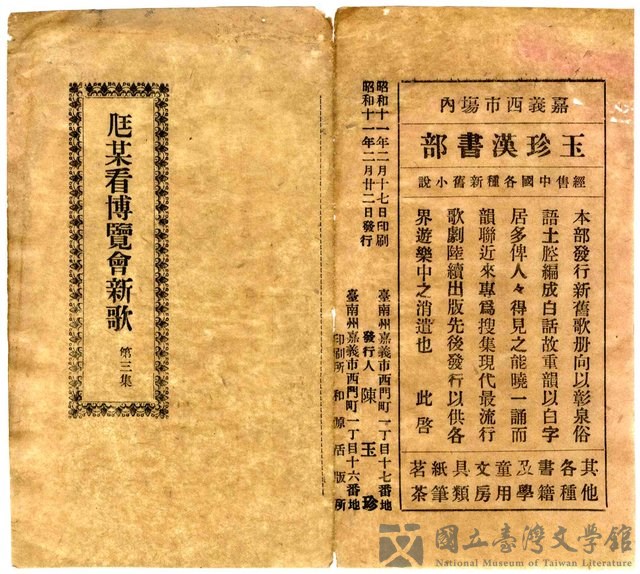 嘉義西市塲內
玉珍漢書部
經售中國各種新舊小說
本部發行新舊歌册向以彰泉俗
語土腔編成白話故重韻以白字
居多俾人々得見之能曉一誦而
韻聯近來專爲搜集現代最流行
歌劇陸續出版先後發行以供各
界遊樂中之消遣也 此啓
其他
各種
書籍
及學
童用
文房
具類
紙筆
茗茶
昭和十一年二月十七日印刷
昭和十一年二月廿二日發行
臺南州嘉義市西門町一丁目十七番地
發行人 陳玉珍
臺南州嘉義市西門町一丁目十六番地
印刷所 和原活版所
尫某看博覽會新歌 第三集
國立臺灣文學館
National Museum of Taiwan Literature